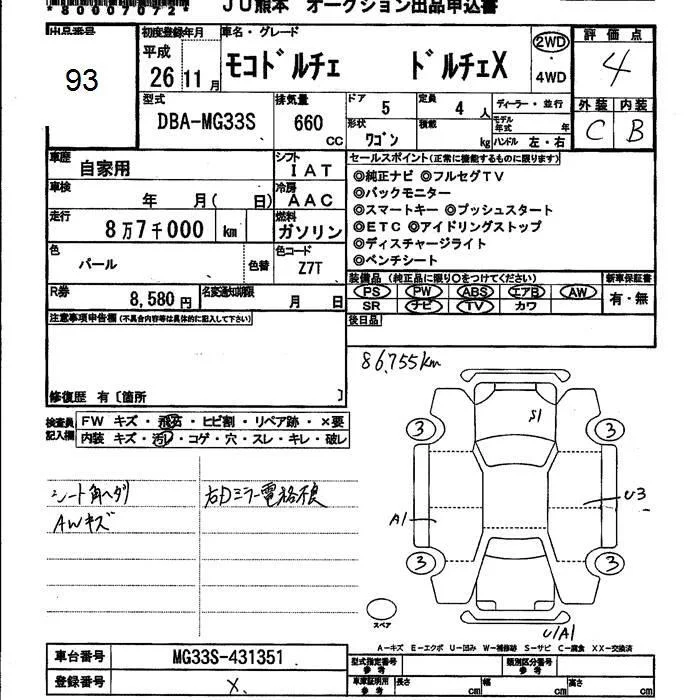 *80007072*
JU熊本 オークション出品申込書
出品番号
93
初度登録年月
平成
26 11月
車名・グレード
モコドルチェ ドルチェX
2WD
・
4WD
評価点
4
外装 内装
C B
型式
DBA-MG33S
排気量
660
CC
ドア 5
定員 4 人
形状 ワゴン
積載 kg
ディーラー・並行
モデル年式 年
ハンドル 左・右
車歴
自家用
シフト
IAT
車検
年 月( 日)
冷房
AAC
走行
8万7千000 km
燃料
ガソリン
色
パール
色替
色コード
Z7T
R券
8,580円
名変通知期限
月 日
セールスポイント(正常に機能するものに限ります)
◎純正ナビ ◎フルセグTV
◎バックモニター
◎スマートキー ◎プッシュスタート
◎ETC ◎アイドリングストップ
◎ディスチャージライト
◎ベンチシート
装備品 (純正品に限り○をつけてください)
新車保証書
PS PW ABS エアB AW
有・無
SR ナビ TV カワ
後日品
注意事項申告欄(不具合内容等は具体的に記入して下さい)
修復歴 有〔箇所 〕
検査員記入欄
FW キズ・飛石・ヒビ割・リペア跡・×要
内装 キズ・汚レ・コゲ・穴・スレ・キレ・破レ
シート角ヘタリ
AWキズ
右Dミラー電格不良
86,755km
S1
3
3
A1
U3
3
3
U1A1
スペア
A-キズ E-エクボ U-凹み W-補修跡 S-サビ C-腐食 XX-交換済
車台番号
MG33S-431351
登録番号
X.
型式指定番号
参考
類別区分番号
参考
車庫証明用
参考
長さ cm
幅 cm
高さ cm